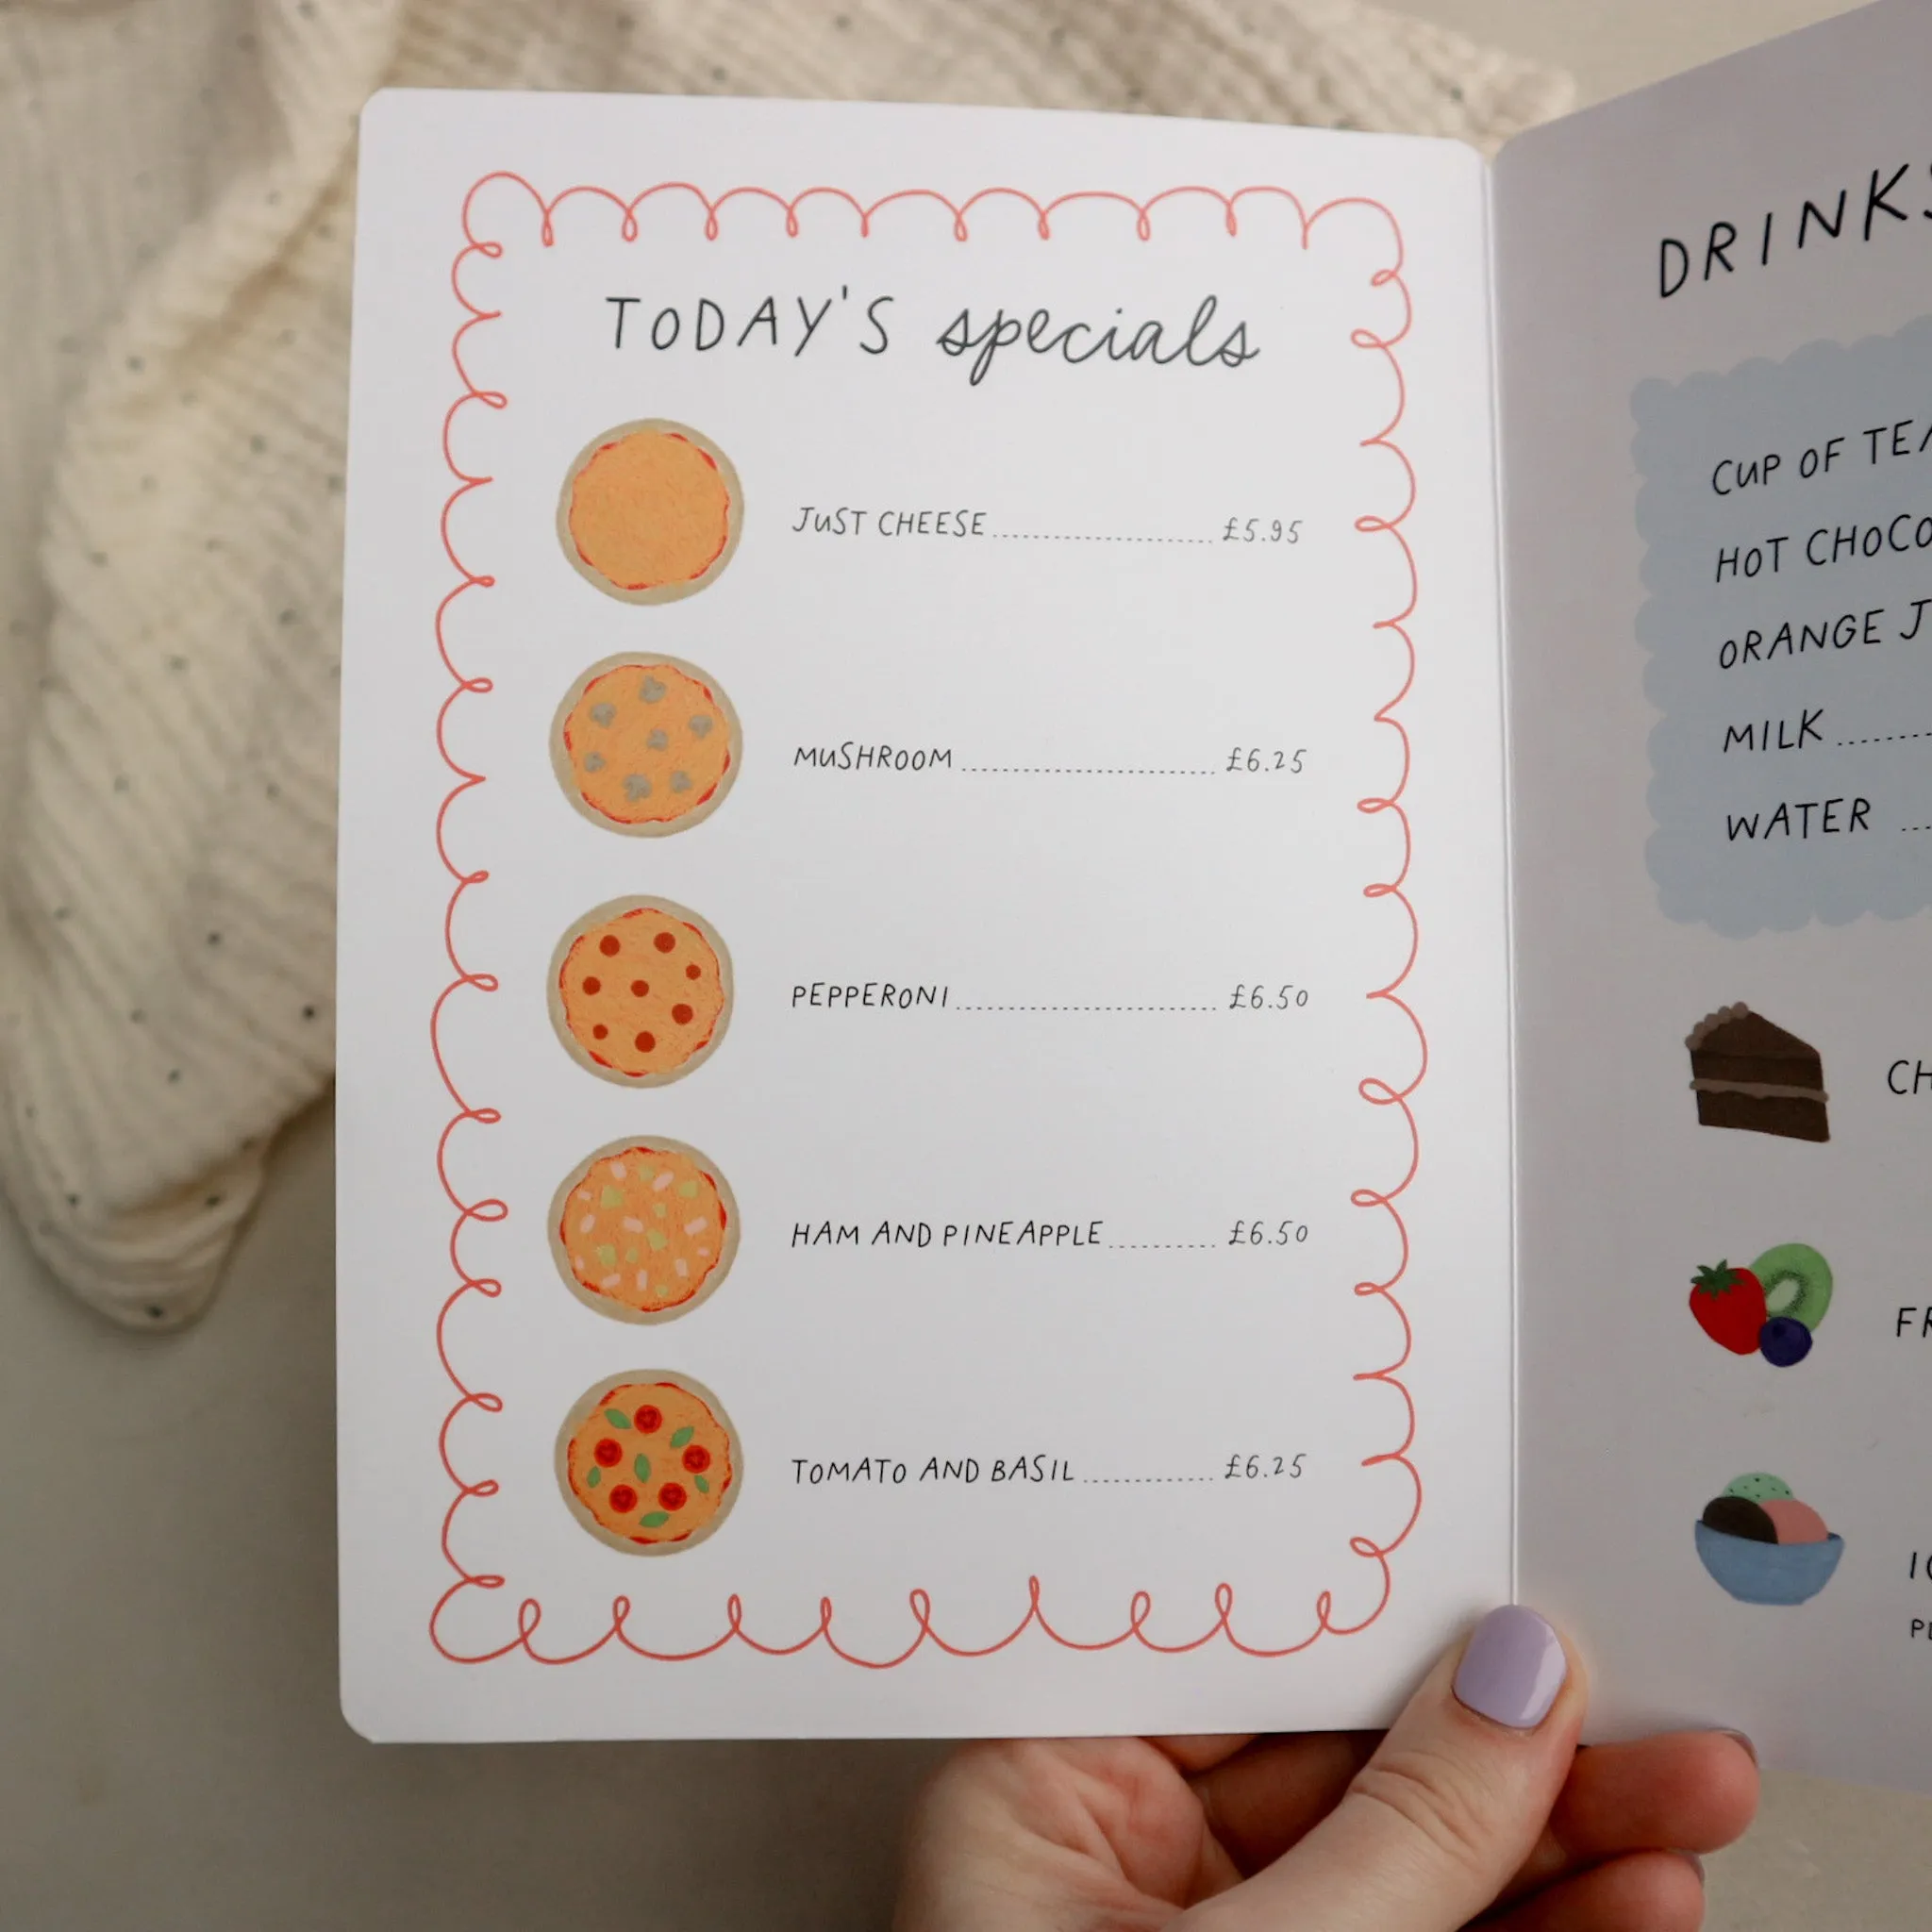 TODAY'S specials
JUST CHEESE £5.95
MUSHROOM £6.25
PEPPERONI £6.50
HAM AND PINEAPPLE £6.50
TOMATO AND BASIL £6.25
DRINKS
CUP OF TEA
HOT CHOCO
ORANGE J
MILK
WATER
CH
FR